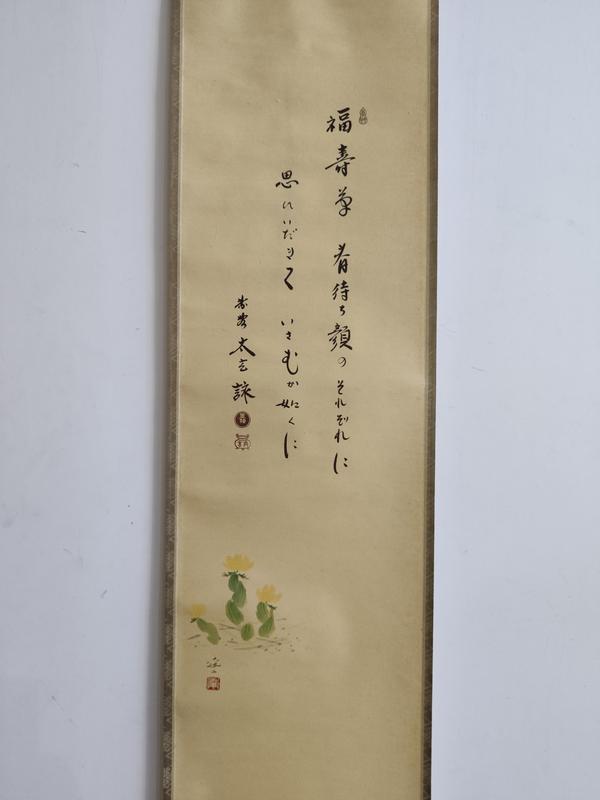 福壽草 春待ち顔の それぞれに
思ひいだきて いさむが如くに
太玄 詠